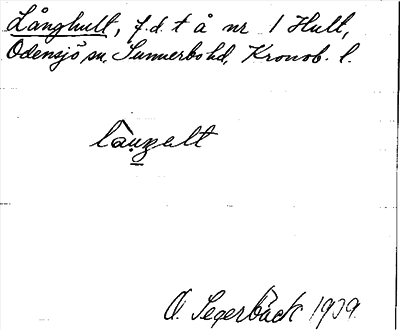 Långhult, f.d. t å nr 1 Hult,
Odensjö sn, Sunnerbo hd, Kronob. l.
O. Segerbäck 1939.